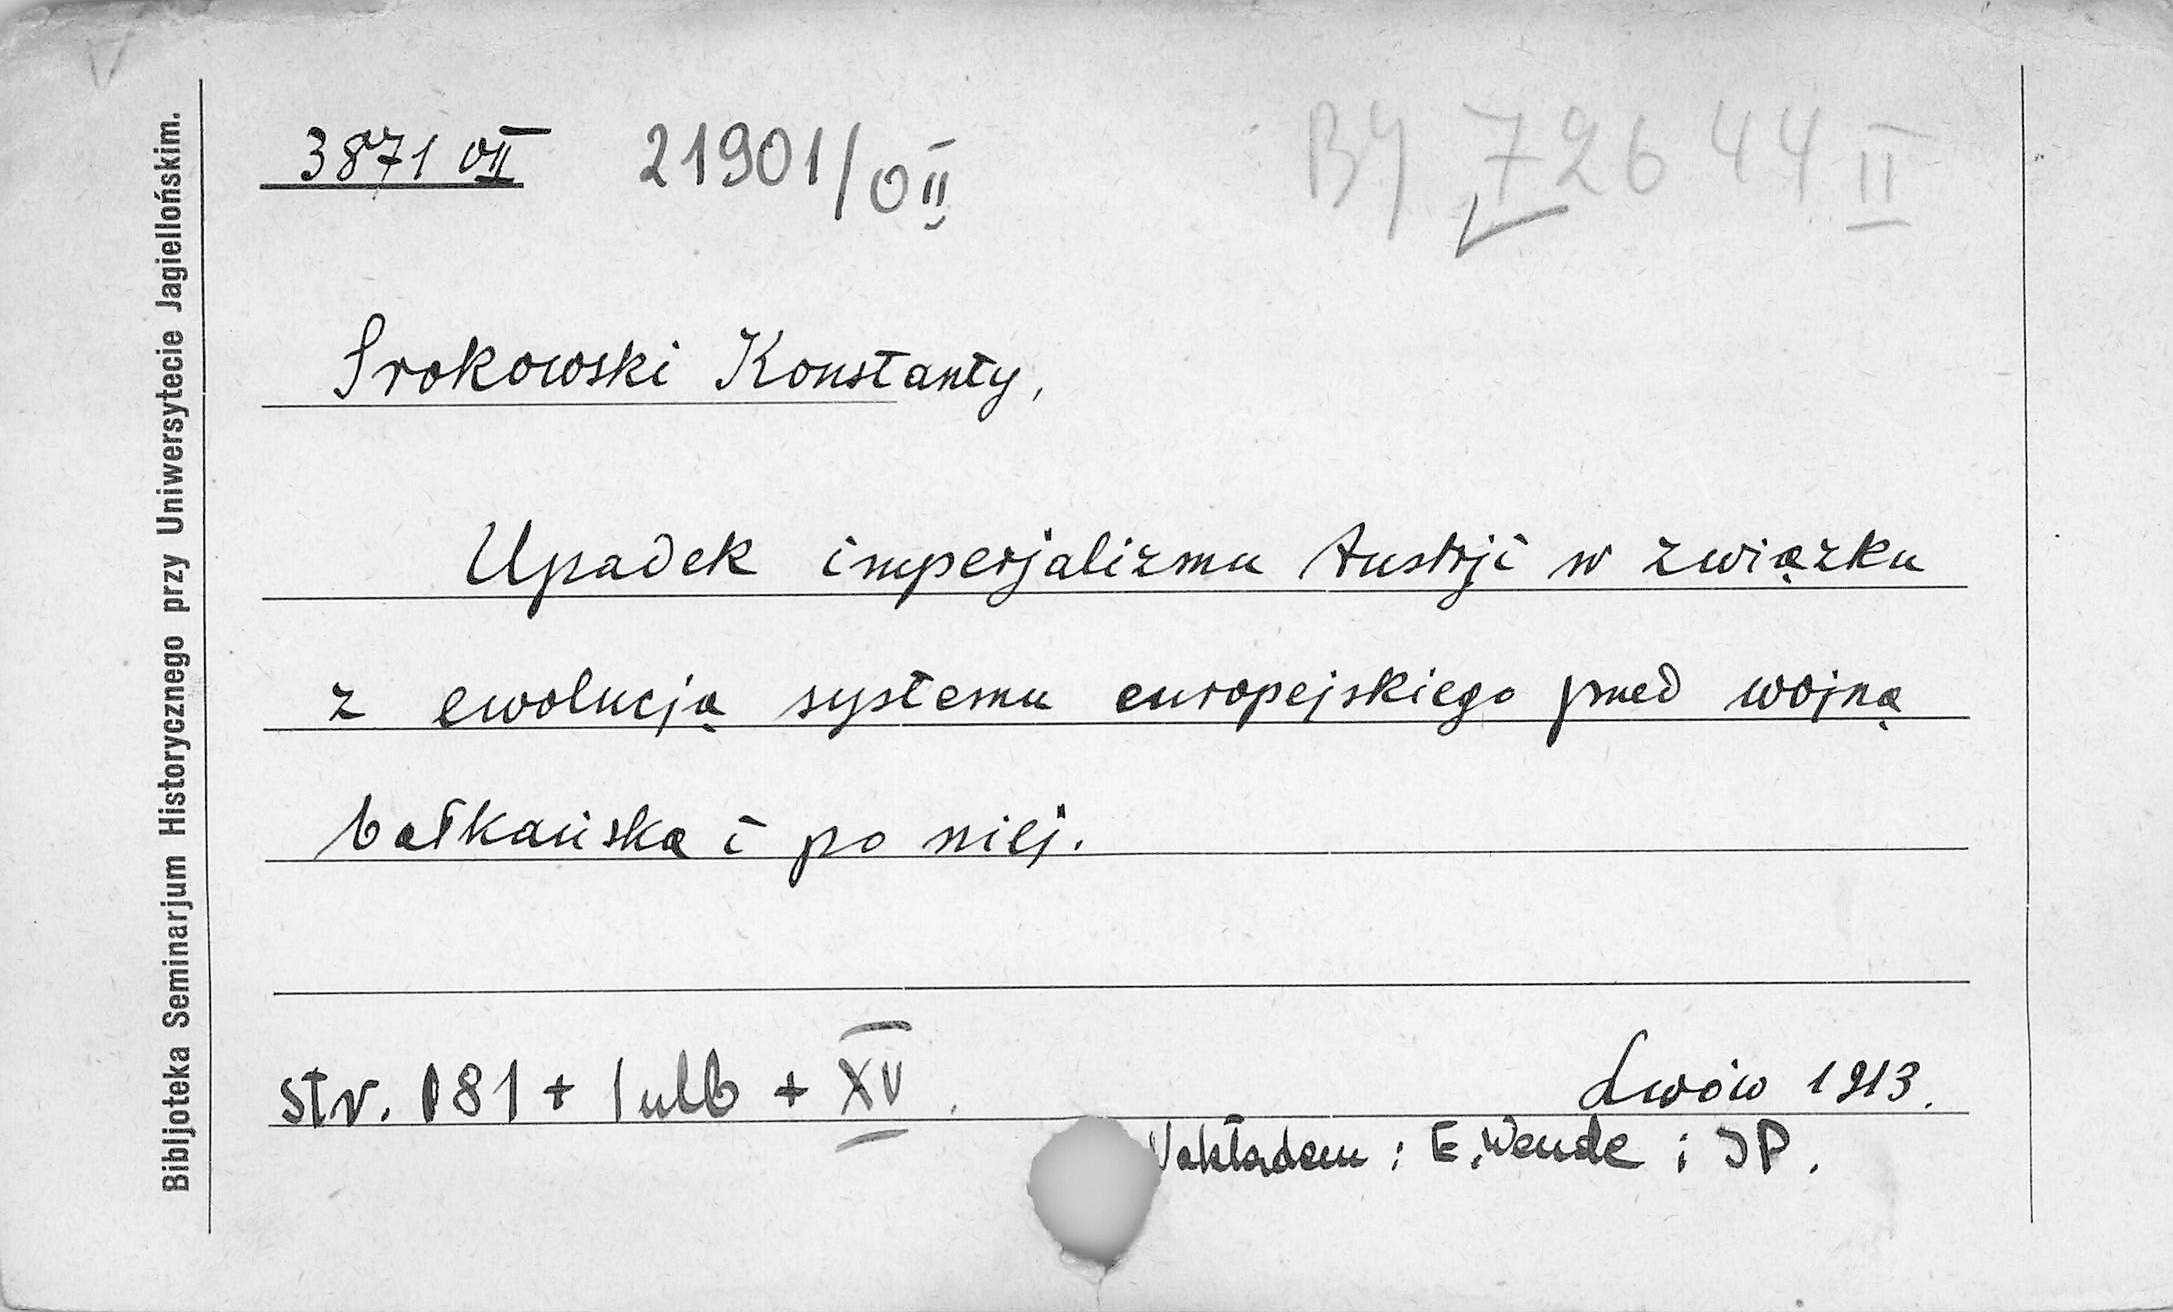 3871 OII 21901/OII BJ 72644 II
Srokowski Konstanty,
Upadek imperjalizmu Austrji w związku
z ewolucją systemu europejskiego przed wojną
bałkańską i po niej.
str. 181 + 1 ulb + XV.
Lwów 1913.
Nakładem: E. Wende i SP.
Bibljoteka Seminarjum Historycznego przy Uniwersytecie Jagiellońskim.